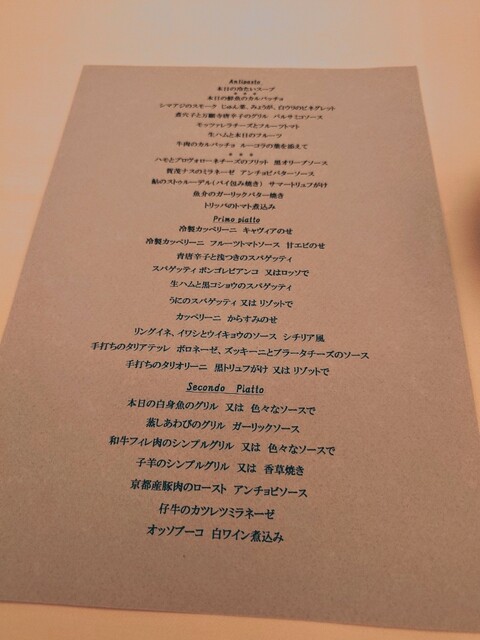 Antipasto
本日の冷たいスープ
＊＊＊
本日の鮮魚のカルパッチョ
シマアジのスモーク じゅん菜、みょうが、白ウリのビネグレット
煮穴子と万願寺唐辛子のグリル バルサミコソース
モッツァレラチーズとフルーツトマト
生ハムと本日のフルーツ
牛肉のカルパッチョ ルーコラの葉を添えて
＊＊＊
ハモとプロヴォローネチーズのフリット 黒オリーブソース
賀茂ナスのミラネーゼ アンチョビバターソース
鮎のストゥルーデル(パイ包み焼き) サマートリュフがけ
魚介のガーリックバター焼き
トリッパのトマト煮込み
Primo piatto
冷製カッペリーニ キャヴィアのせ
冷製カッペリーニ フルーツトマトソース 甘エビのせ
青唐辛子と浅つきのスパゲッティ
スパゲッティボンゴレビアンコ 又はロッソで
生ハムと黒コショウのスパゲッティ
うにのスパゲティ 又は リゾットで
カッペリーニ からすみのせ
リングイネ、イワシとウイキョウのソース シチリア風
手打ちのタリアテッレ ボロネーゼ、ズッキーニとブラータチーズのソース
手打ちのタリオリーニ 黒トリュフがけ 又は リゾットで
Secondo Piatto
本日の白身魚のグリル 又は 色々なソースで
蒸しあわびのグリル ガーリックソース
和牛フィレ肉のシンプルグリル 又は 色々なソースで
子羊のシンプルグリル 又は 香草焼き
京都産豚肉のロースト アンチョビソース
仔牛のカツレツミラネーゼ
オッソブーコ 白ワイン煮込み